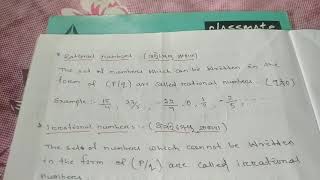 classmate
* Rational numbers :- (
The set of numbers which can be written in the
form of (P/q) are called rational numbers. (q≠0)
Example :-
* Irrational numbers :- (
The set of numbers which cannot be written
in the form of (P/q) are called irrational
numbers